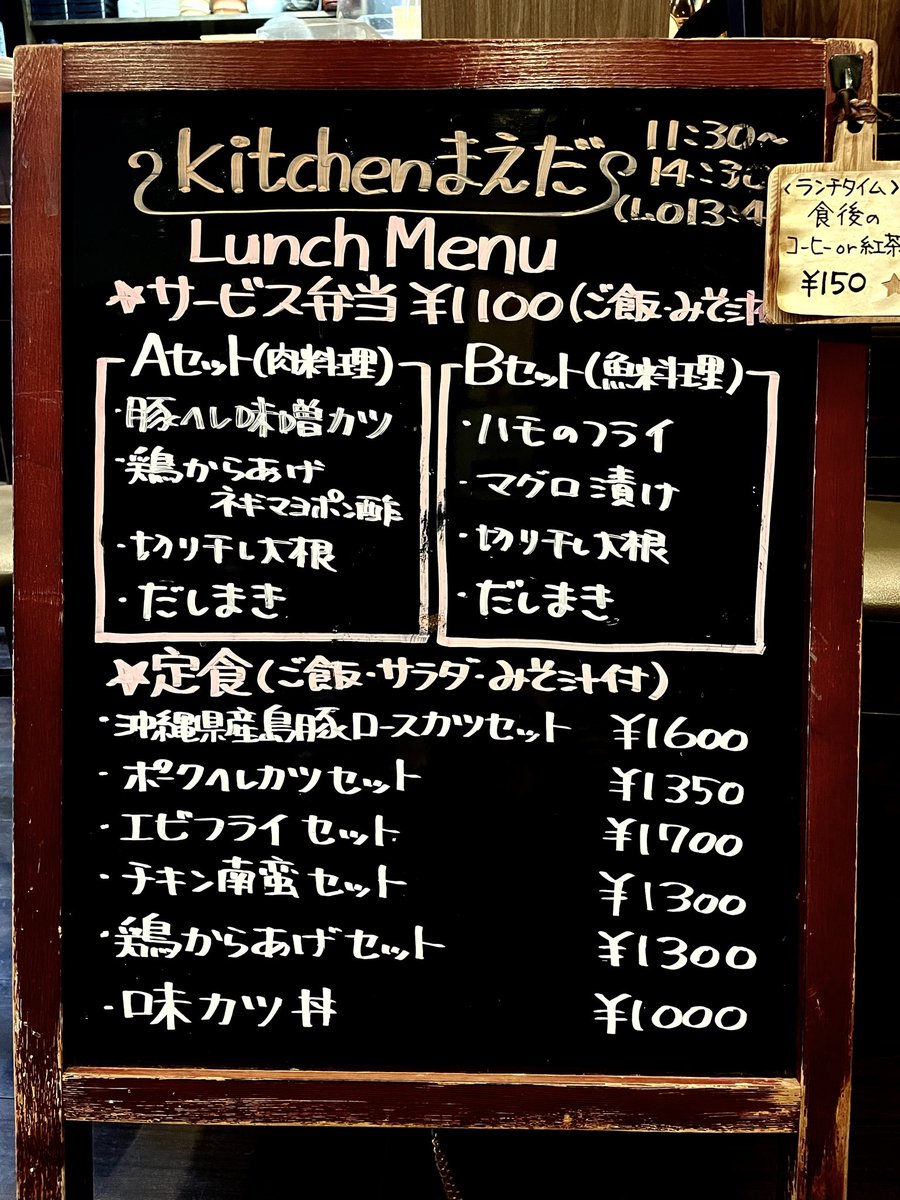 Kitchenまえだ
11:30~
14:30
(LO13:4
Lunch Menu
<ランチタイム>
食後の
コーヒーor紅茶
¥150
☆サービス弁当 ¥1100(ご飯・みそ汁
Aセット(肉料理)
・豚ヘレ味噌カツ
・鶏からあげ
ネギマヨポン酢
・切り干し大根
・だしまき
Bセット(魚料理)
・ハモのフライ
・マグロ漬け
・切り干し大根
・だしまき
☆定食(ご飯・サラダ・みそ汁付)
・沖縄県産島豚ロースカツセット ¥1600
・ポークヘレカツセット ¥1350
・エビフライセット ¥1700
・チキン南蛮セット ¥1300
・鶏からあげセット ¥1300
・味カツ丼 ¥1000